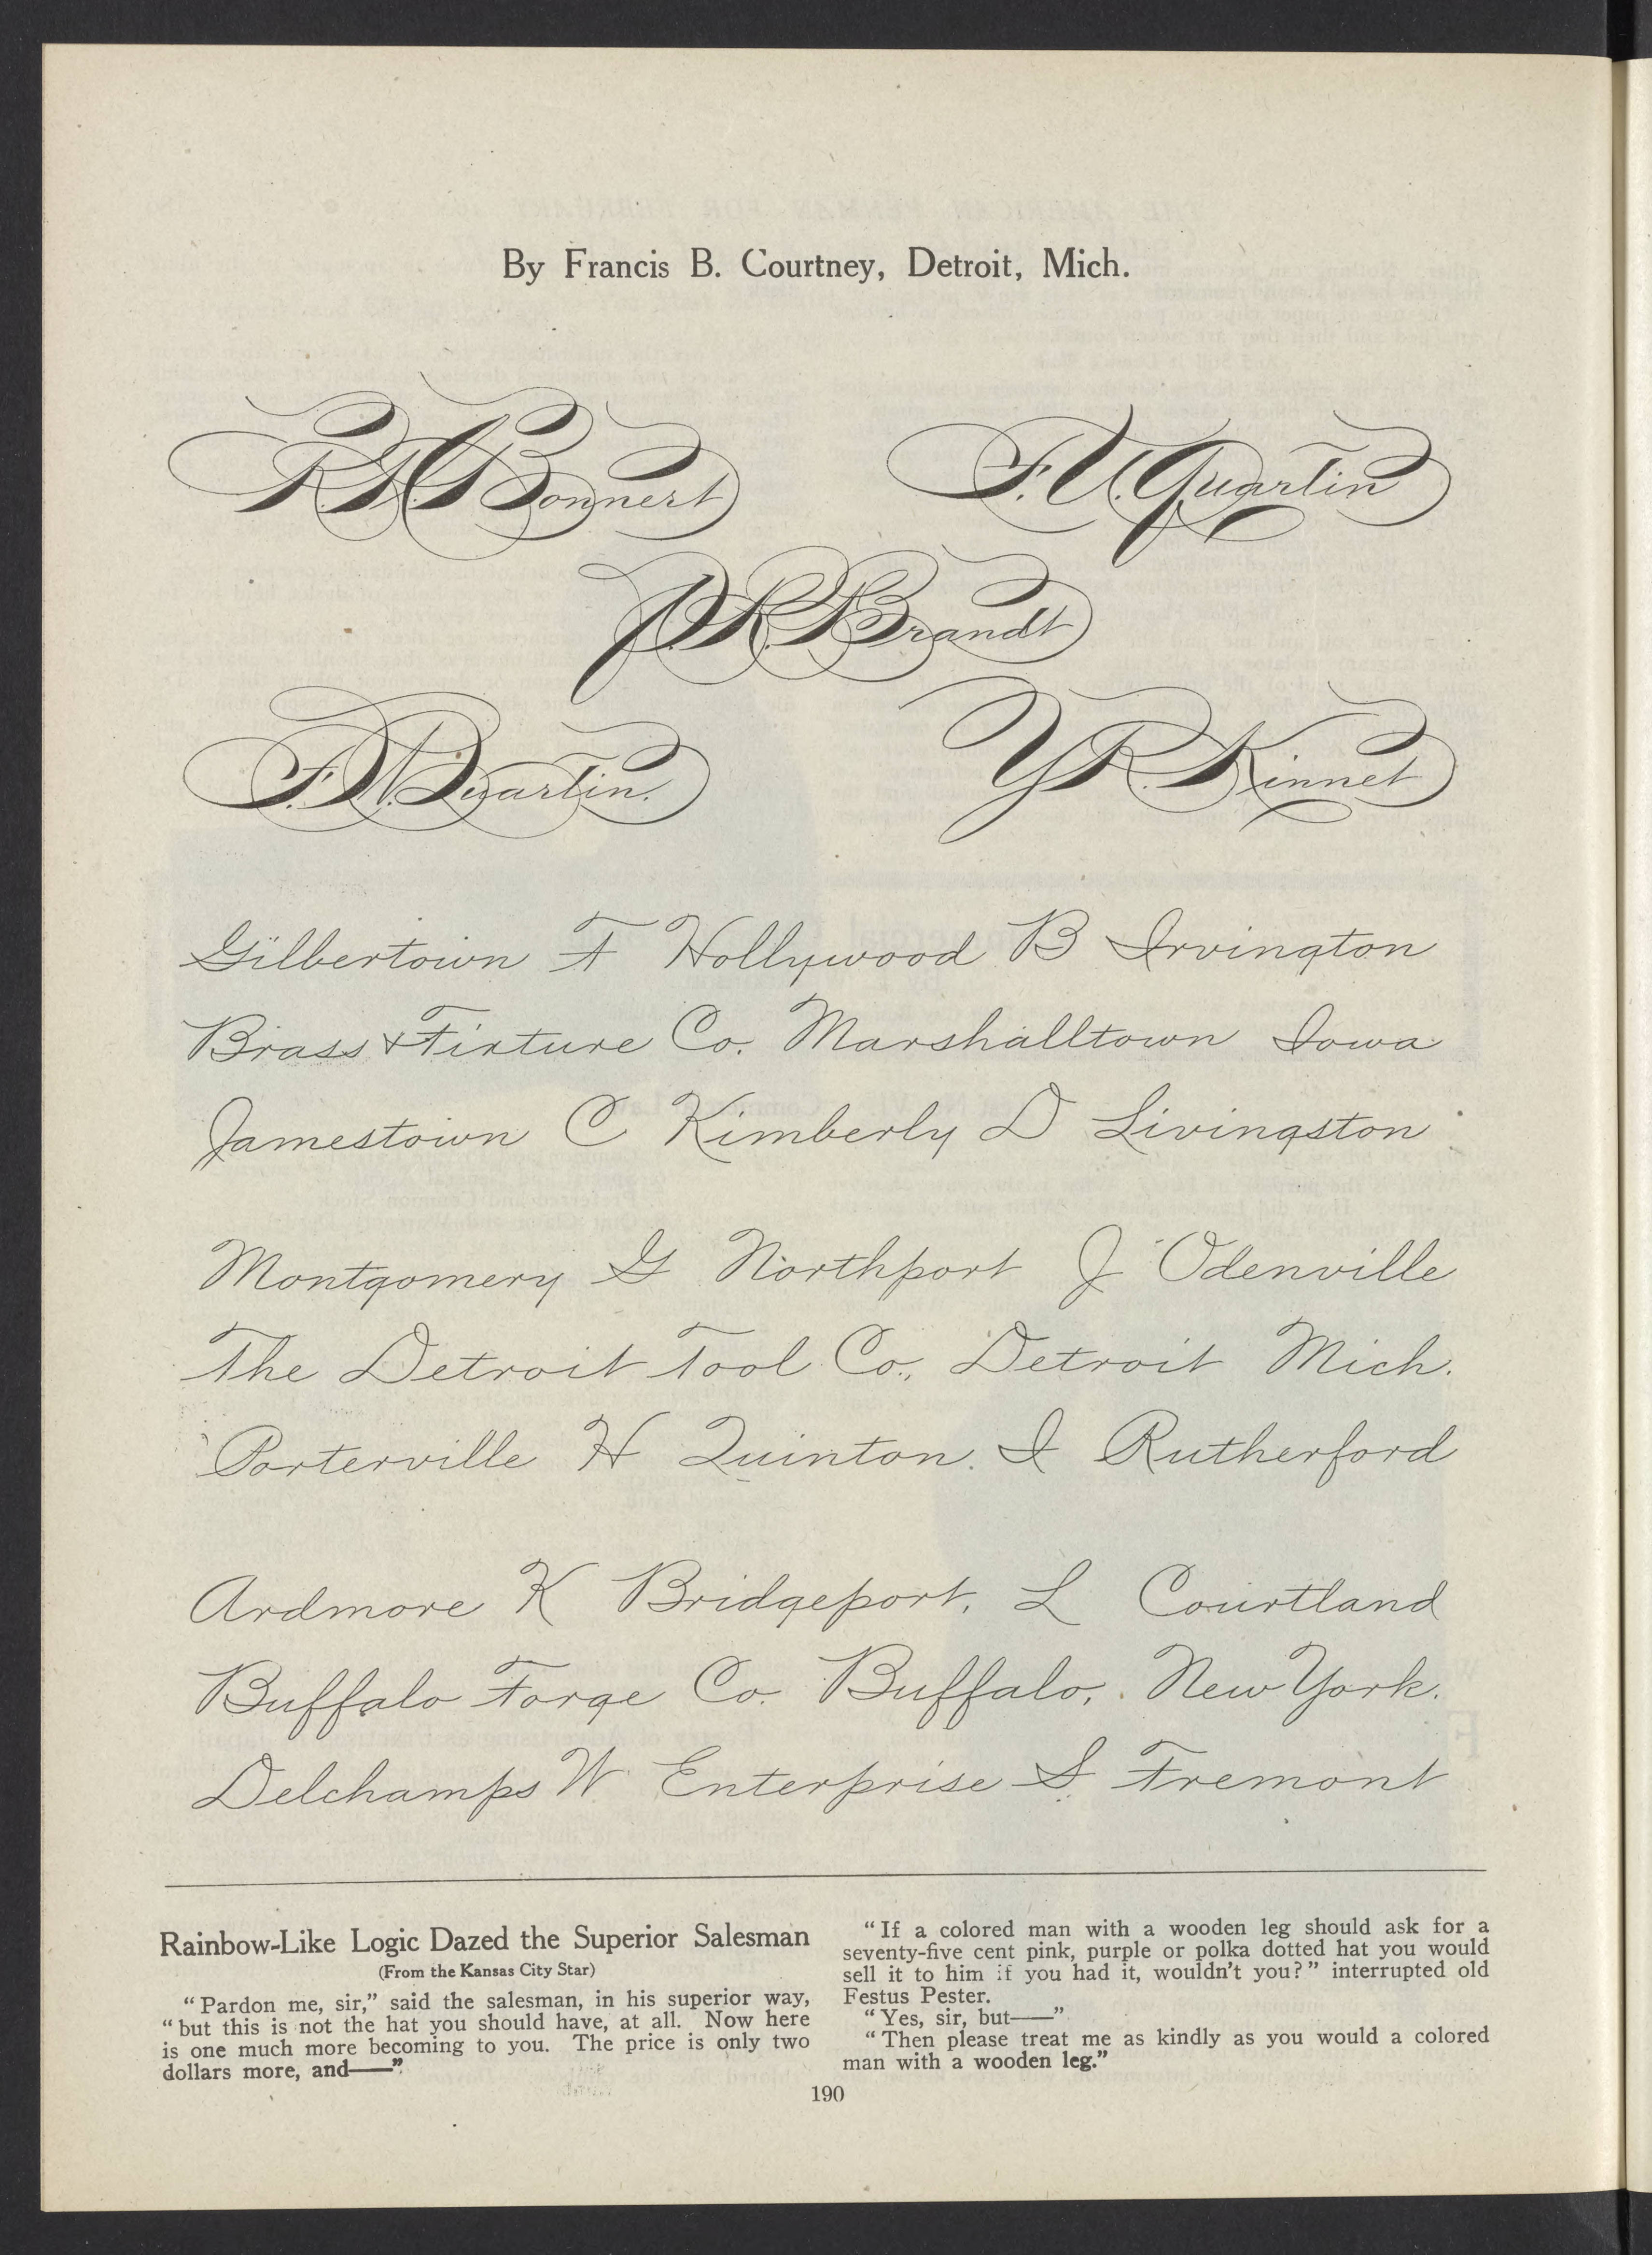 By Francis B. Courtney, Detroit, Mich.
Bonnert
F. U. Quartin
P. R. Brandt
F. W. Quartin.
Y R. Kinnet
Gilbertown F Hollywood B Irvington
Brass & Fixture Co. Marshalltown Iowa
Jamestown C Kimberly D Livingston
Montgomery G Northport J Odenville
The Detroit Tool Co., Detroit Mich.
Porterville H Quinton. I Rutherford
Ardmore K Bridgeport, L Courtland
Buffalo Forge Co. Buffalo, New York.
Delchamps W Enterprise S Fremont
Rainbow-Like Logic Dazed the Superior Salesman
(From the Kansas City Star)
“Pardon me, sir,” said the salesman, in his superior way,
“but this is not the hat you should have, at all. Now here
is one much more becoming to you. The price is only two
dollars more, and——”
“If a colored man with a wooden leg should ask for a
seventy-five cent pink, purple or polka dotted hat you would
sell it to him if you had it, wouldn't you?” interrupted old
Festus Pester.
“Yes, sir, but——”
“Then please treat me as kindly as you would a colored
man with a wooden leg.”
190